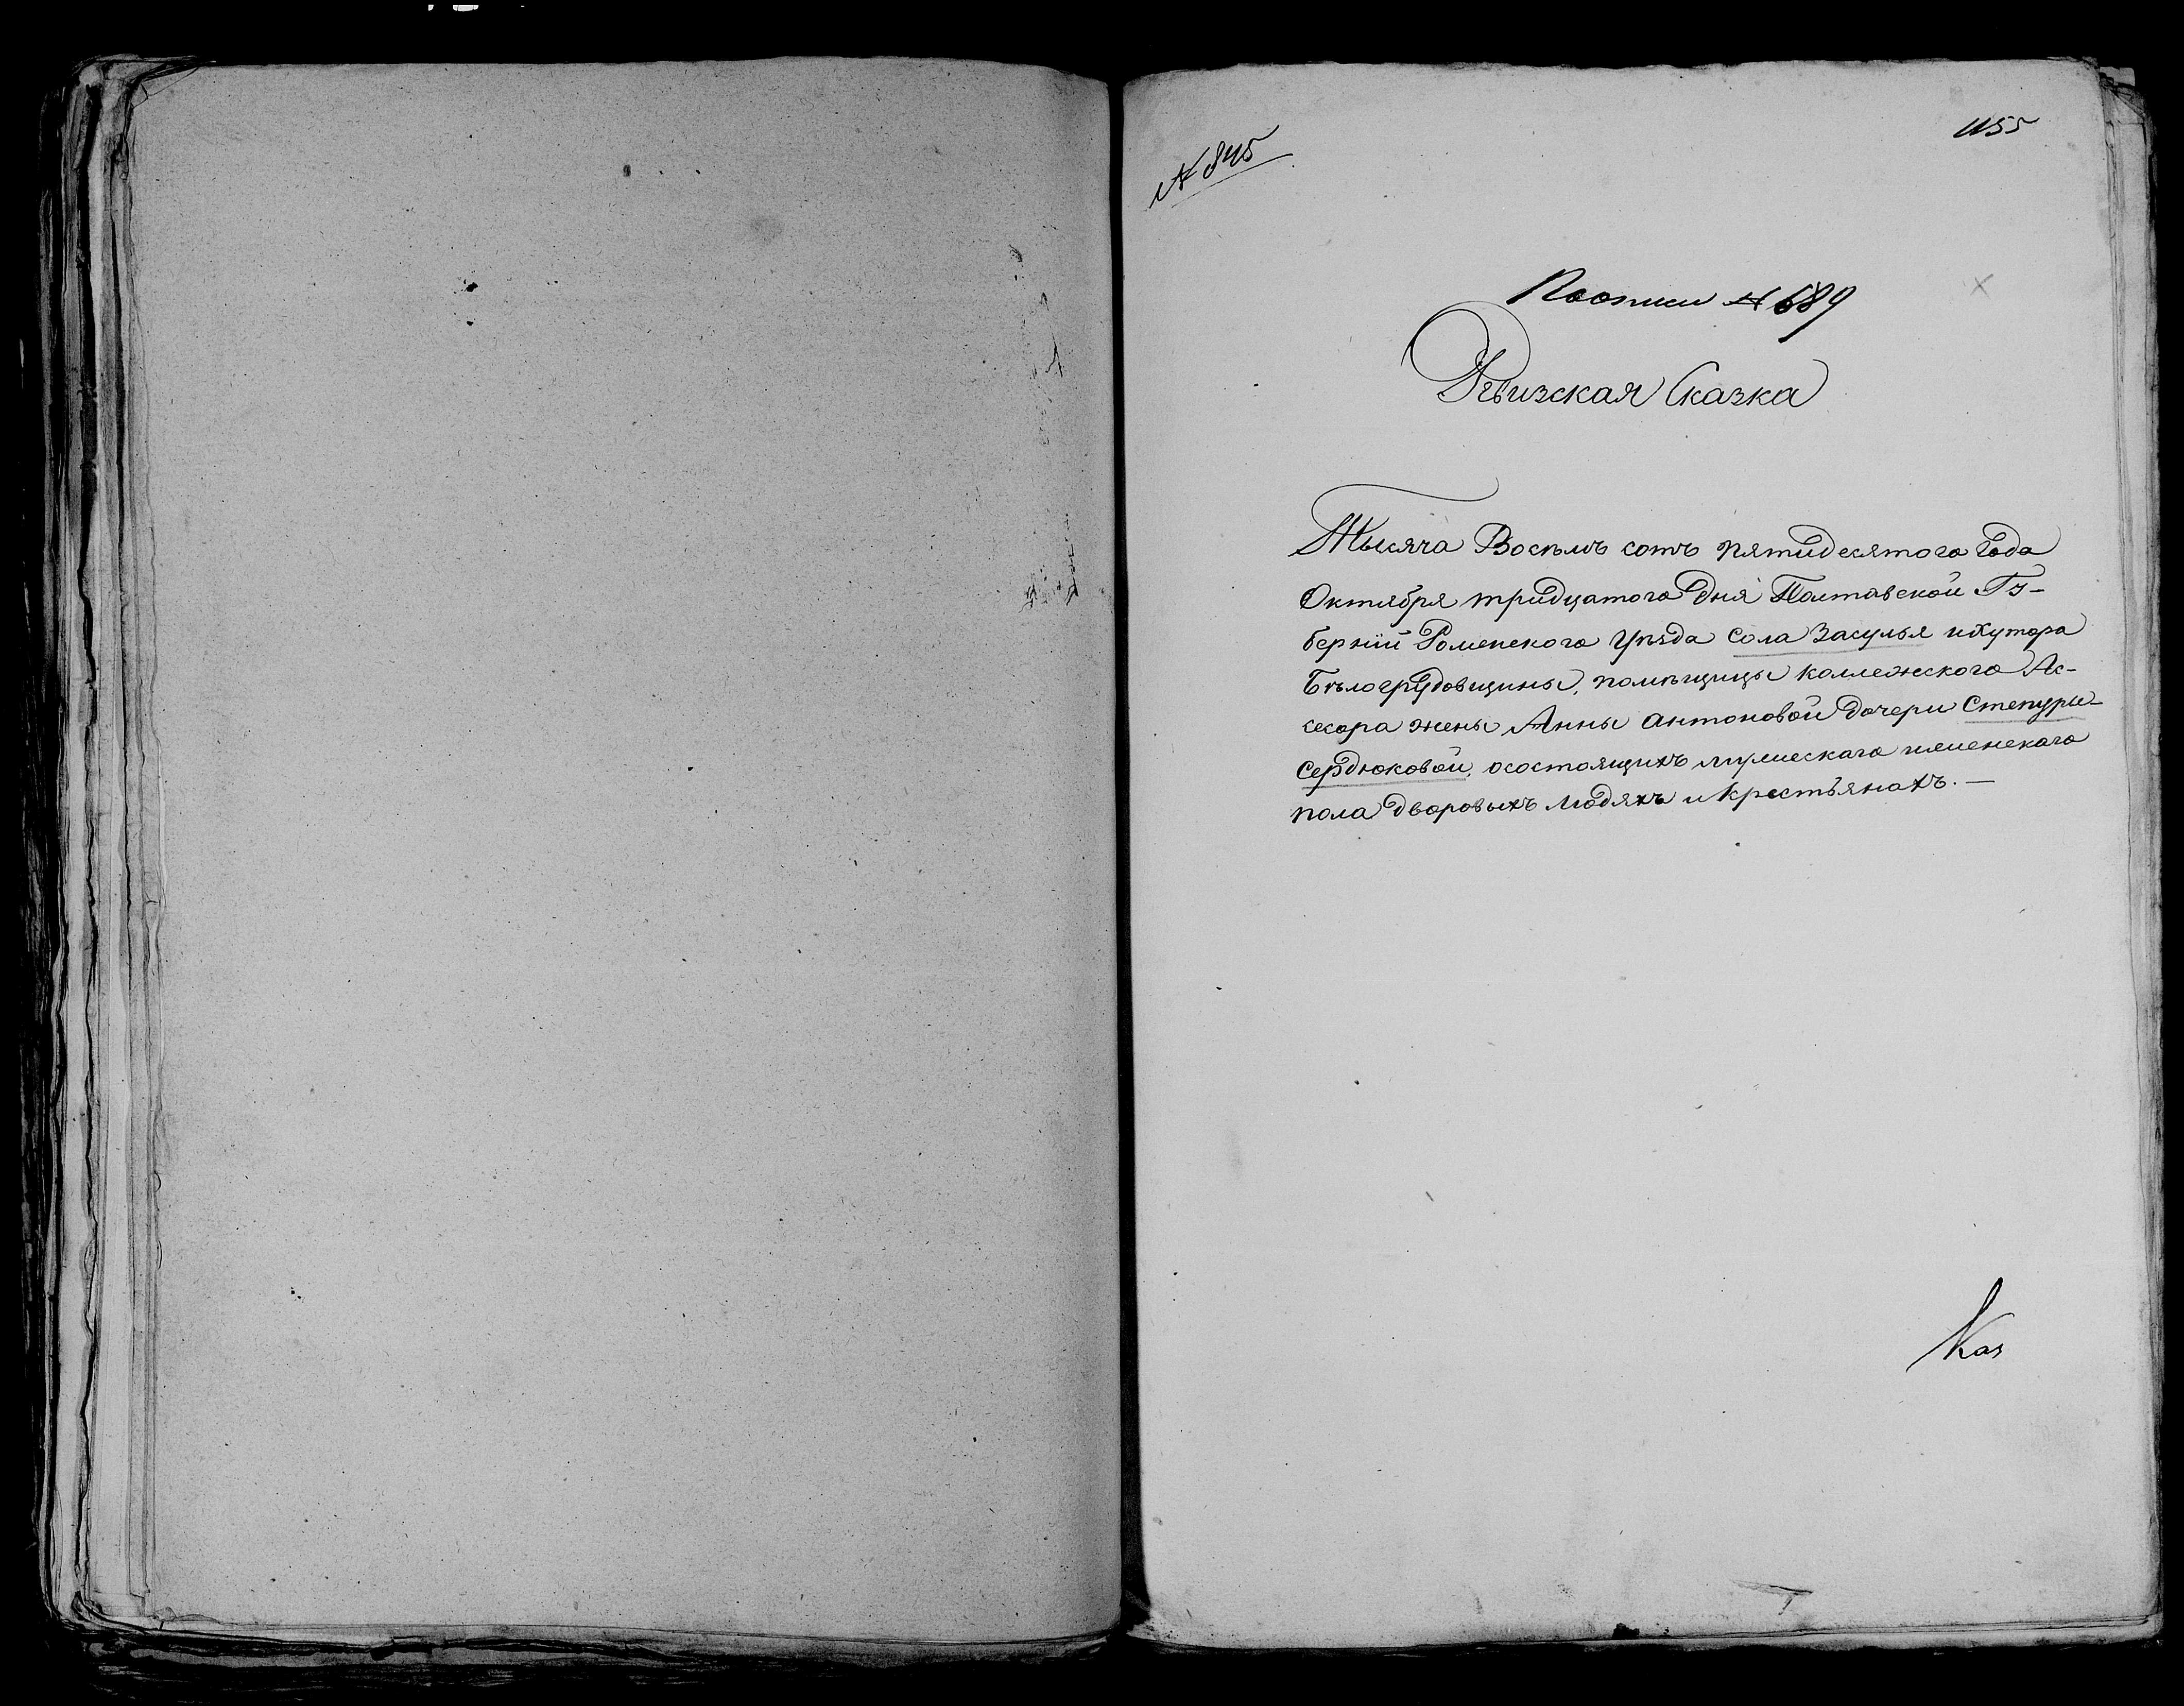 1155
№ 845
По описи № 689
Ревизская Сказка
Тысяча Восемь сотъ пятидесятого Года
Октября тридцатого дня Полтавской Гу-
берніи Роменского Уѣзда Села Засулья и Хутора
Бѣлогрудовщины, помѣщицы коллежского Ас-
сесора жены Анны Антоновой дочери Степури-
Сердюковой, о состоящихъ мужескаго и женскаго
пола дворовыхъ людяхъ и крестьянахъ. —
Каз